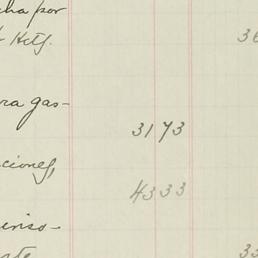 cha por
Kctf.
36
ra gas-
3173
ciones,
4333
enso-
33